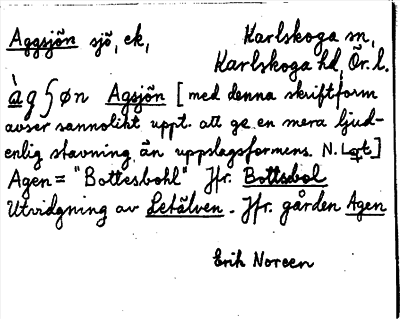 Aggsjön sjö, ek, Karlskoga sn,
Karlskoga hd, Ör. l.
àgʃøn Agsjön [med denna skriftform
avser sannolikt uppt. att ge en mera ljud-
enlig stavning än uppslagsformens. N. Lgt.]
Agen = "Bottesbohl" Jfr. Bottsbol
Utvidgning av Letälven. Jfr. gården Agen
Erik Noreen